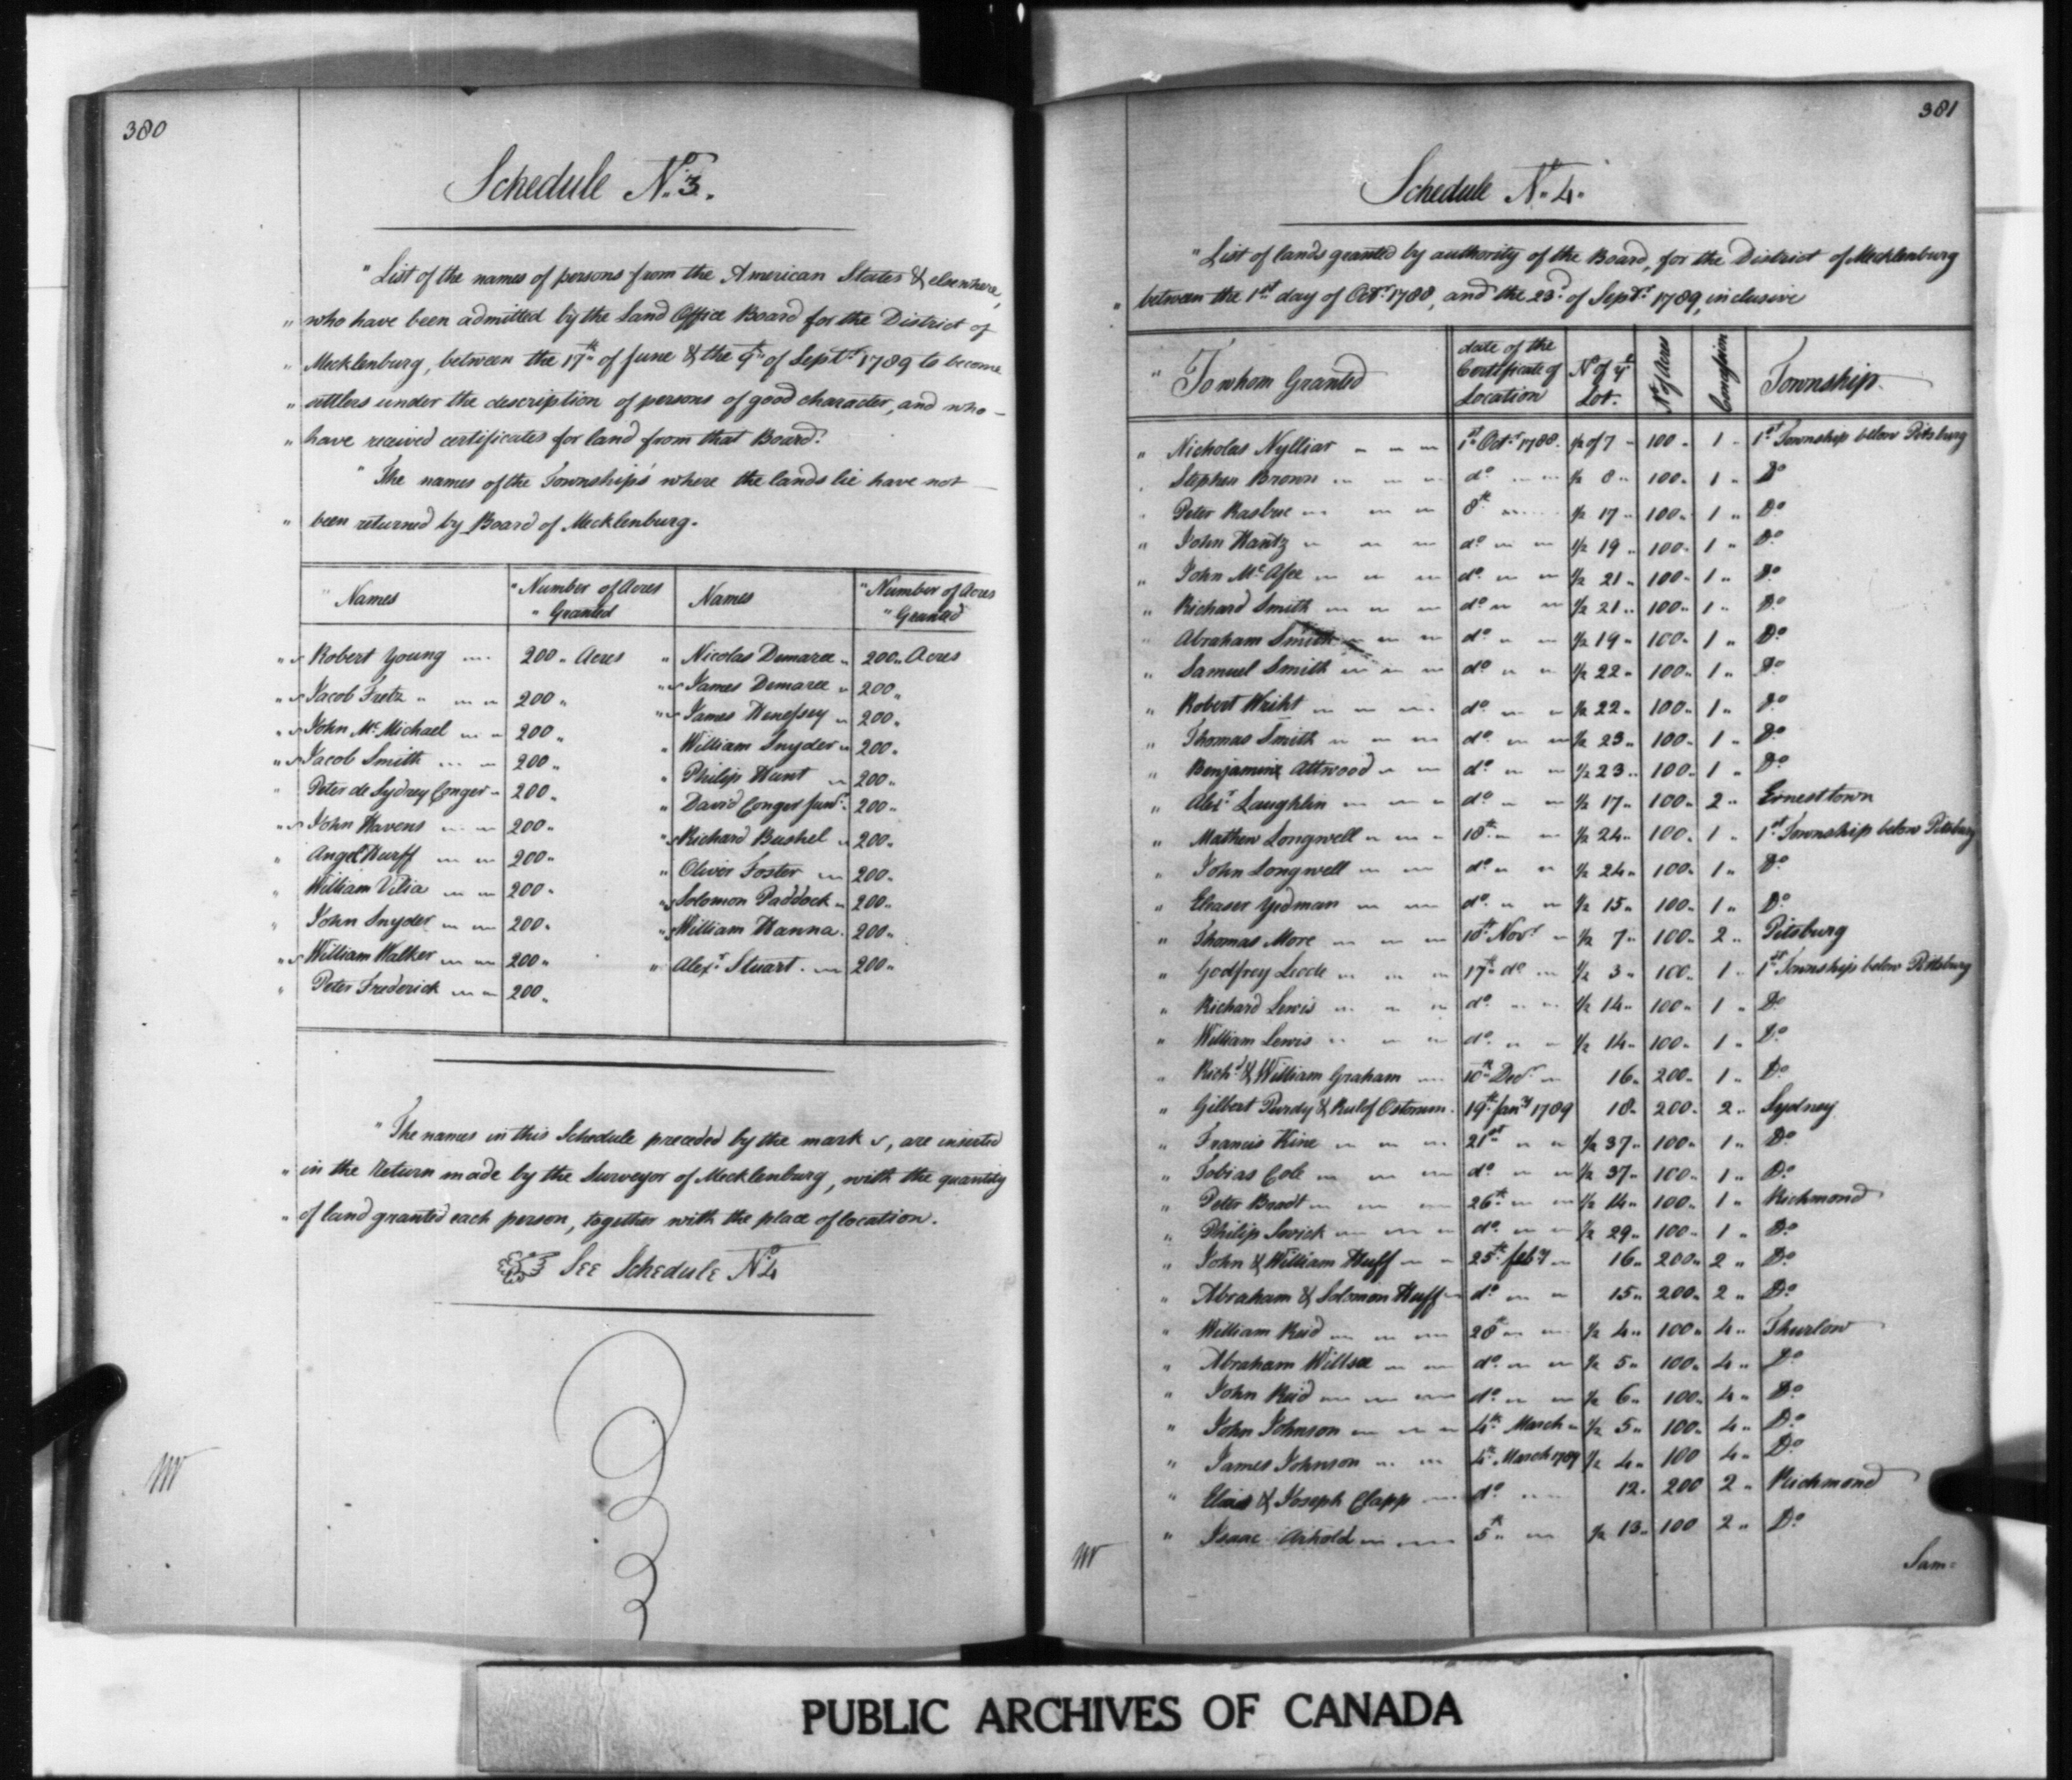 380
Schedule No. 3.
"List of the names of persons from the American States & elsewhere,
" who have been admitted by the Land Office Board for the District of
" Mecklenburg, between the 17th of June & the 9th of Septr 1789 to become
" settlers under the description of persons of good character, and who
" have received certificates for land from that Board.
" The names of the Township's where the lands lie have not
" been returned by Board of Mecklenburg.
" Names " Number of Acres Granted Names " Number of Acres Granted
" v Robert Young 200 " Acres " Nicolas Demaree " 200 " Acres
" v Jacob Fretz 200 " " v James Demaree " 200 "
" v John Mc Michael 200 " " v James Henessey 200 "
" v Jacob Smith 200 " " William Snyder 200 "
" Peter de Sydney Conger 200 " " Philip Hunt 200 "
" v John Havens 200 " " David Conger junr 200 "
" Angel Hurff 200 " " v Richard Bushel 200 "
" William Vilia 200 " " Oliver Foster 200 "
" John Snyder 200 " " v Solomon Paddock 200 "
" v William Walker 200 " " v William Hanna 200 "
" Peter Frederick 200 " " Alexr Stuart 200 "
" The names in this Schedule preceded by the mark v, are inserted
" in the Return made by the Surveyor of Mecklenburg, with the quantity
" of land granted each person, together with the place of location.
See Schedule No 4
381
Schedule No. 4.
" List of lands granted by authority of the Board, for the District of Mecklenburg
" between the 1st day of Octr 1788, and the 23d of Septr 1789, inclusive
" To whom Granted date of the Certificate of Location No of ye Lot. No of Acres Concession Township
" Nicholas Nylliar 1st Octr 1788. 1/2 of 7 100 1 1st Township below Pitsburg
" Stephen Brown do 1/2 8 100 1 Do
" Peter Rasbue 8th 1/2 17 100 1 Do
" John Hantz do 1/2 19 100 1 Do
" John Mc Afee do 1/2 21 100 1 Do
" Richard Smith do 1/2 21 100 1 Do
" Abraham Smith do 1/2 19 100 1 Do
" Samuel Smith do 1/2 22 100 1 Do
" Robert Wriht do 1/2 22 100 1 Do
" Thomas Smith do 1/2 23 100 1 Do
" Benjamine Attwood do 1/2 23 100 1 Do
" Alexr Laughlin do 1/2 17 100 2 Ernesttown
" Mathew Longwell 18th 1/2 24 100 1 1st Township below Pitsburg
" John Longwell do 1/2 24 100 1 Do
" Eleaser Yedman do 1/2 15 100 1 Do
" Thomas More 10th Novr 1/2 7 100 2 Pitsburg
" Godfrey Leode 17th do 1/2 3 100 1 1st Township below Pittsburg
" Richard Lewis do 1/2 14 100 1 Do
" William Lewis do 1/2 14 100 1 Do
" Richd & William Graham 10th Decr 16 200 1 Do
" Gilbert Purdy & Rulof Ostorum 19th Jany 1789 18 200 2 Sydney
" Francis Hine 21st 1/2 37 100 1 Do
" Tobias Cole do 1/2 37 100 1 Do
" Peter Bondt 26th 1/2 14 100 1 Richmond
" Philip Swick do 1/2 29 100 1 Do
" John & William Huff 25th feby 16 200 2 Do
" Abraham & Solomon Huff do 15 200 2 Do
" William Reid 28th 1/2 4 100 4 Thurlow
" Abraham Willsee do 1/2 5 100 4 Do
" John Reid do 1/2 6 100 4 Do
" John Johnson 4th March 1/2 5 100 4 Do
" James Johnson 4th March 1789 1/2 4 100 4 Do
" Elias & Joseph Clapp do 12 200 2 Richmond
" Isaac Arhold 5th 1/2 13 100 2 Do
Sam=
PUBLIC ARCHIVES OF CANADA